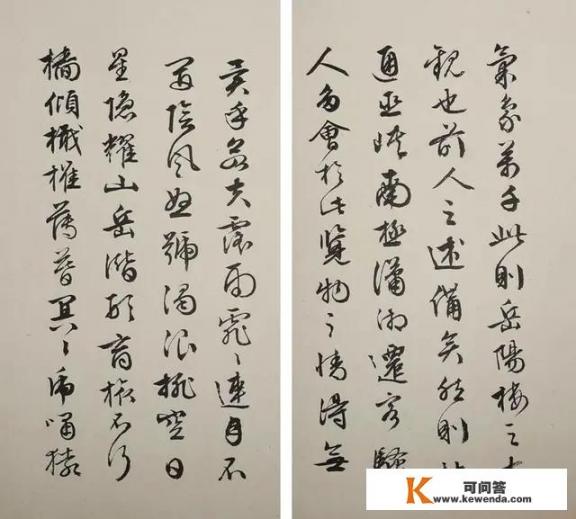 氣象萬千此則岳陽樓之大
觀也前人之述備矣然則北
通巫峽南極瀟湘遷客騷
人多會於此覽物之情得無
異乎若夫霪雨霏々連月不
開陰風怒號濁浪排空日
星隱耀山岳潛形商旅不行
檣傾檝摧薄暮冥々虎嘯猿
K 可问答
www.kewenda.com